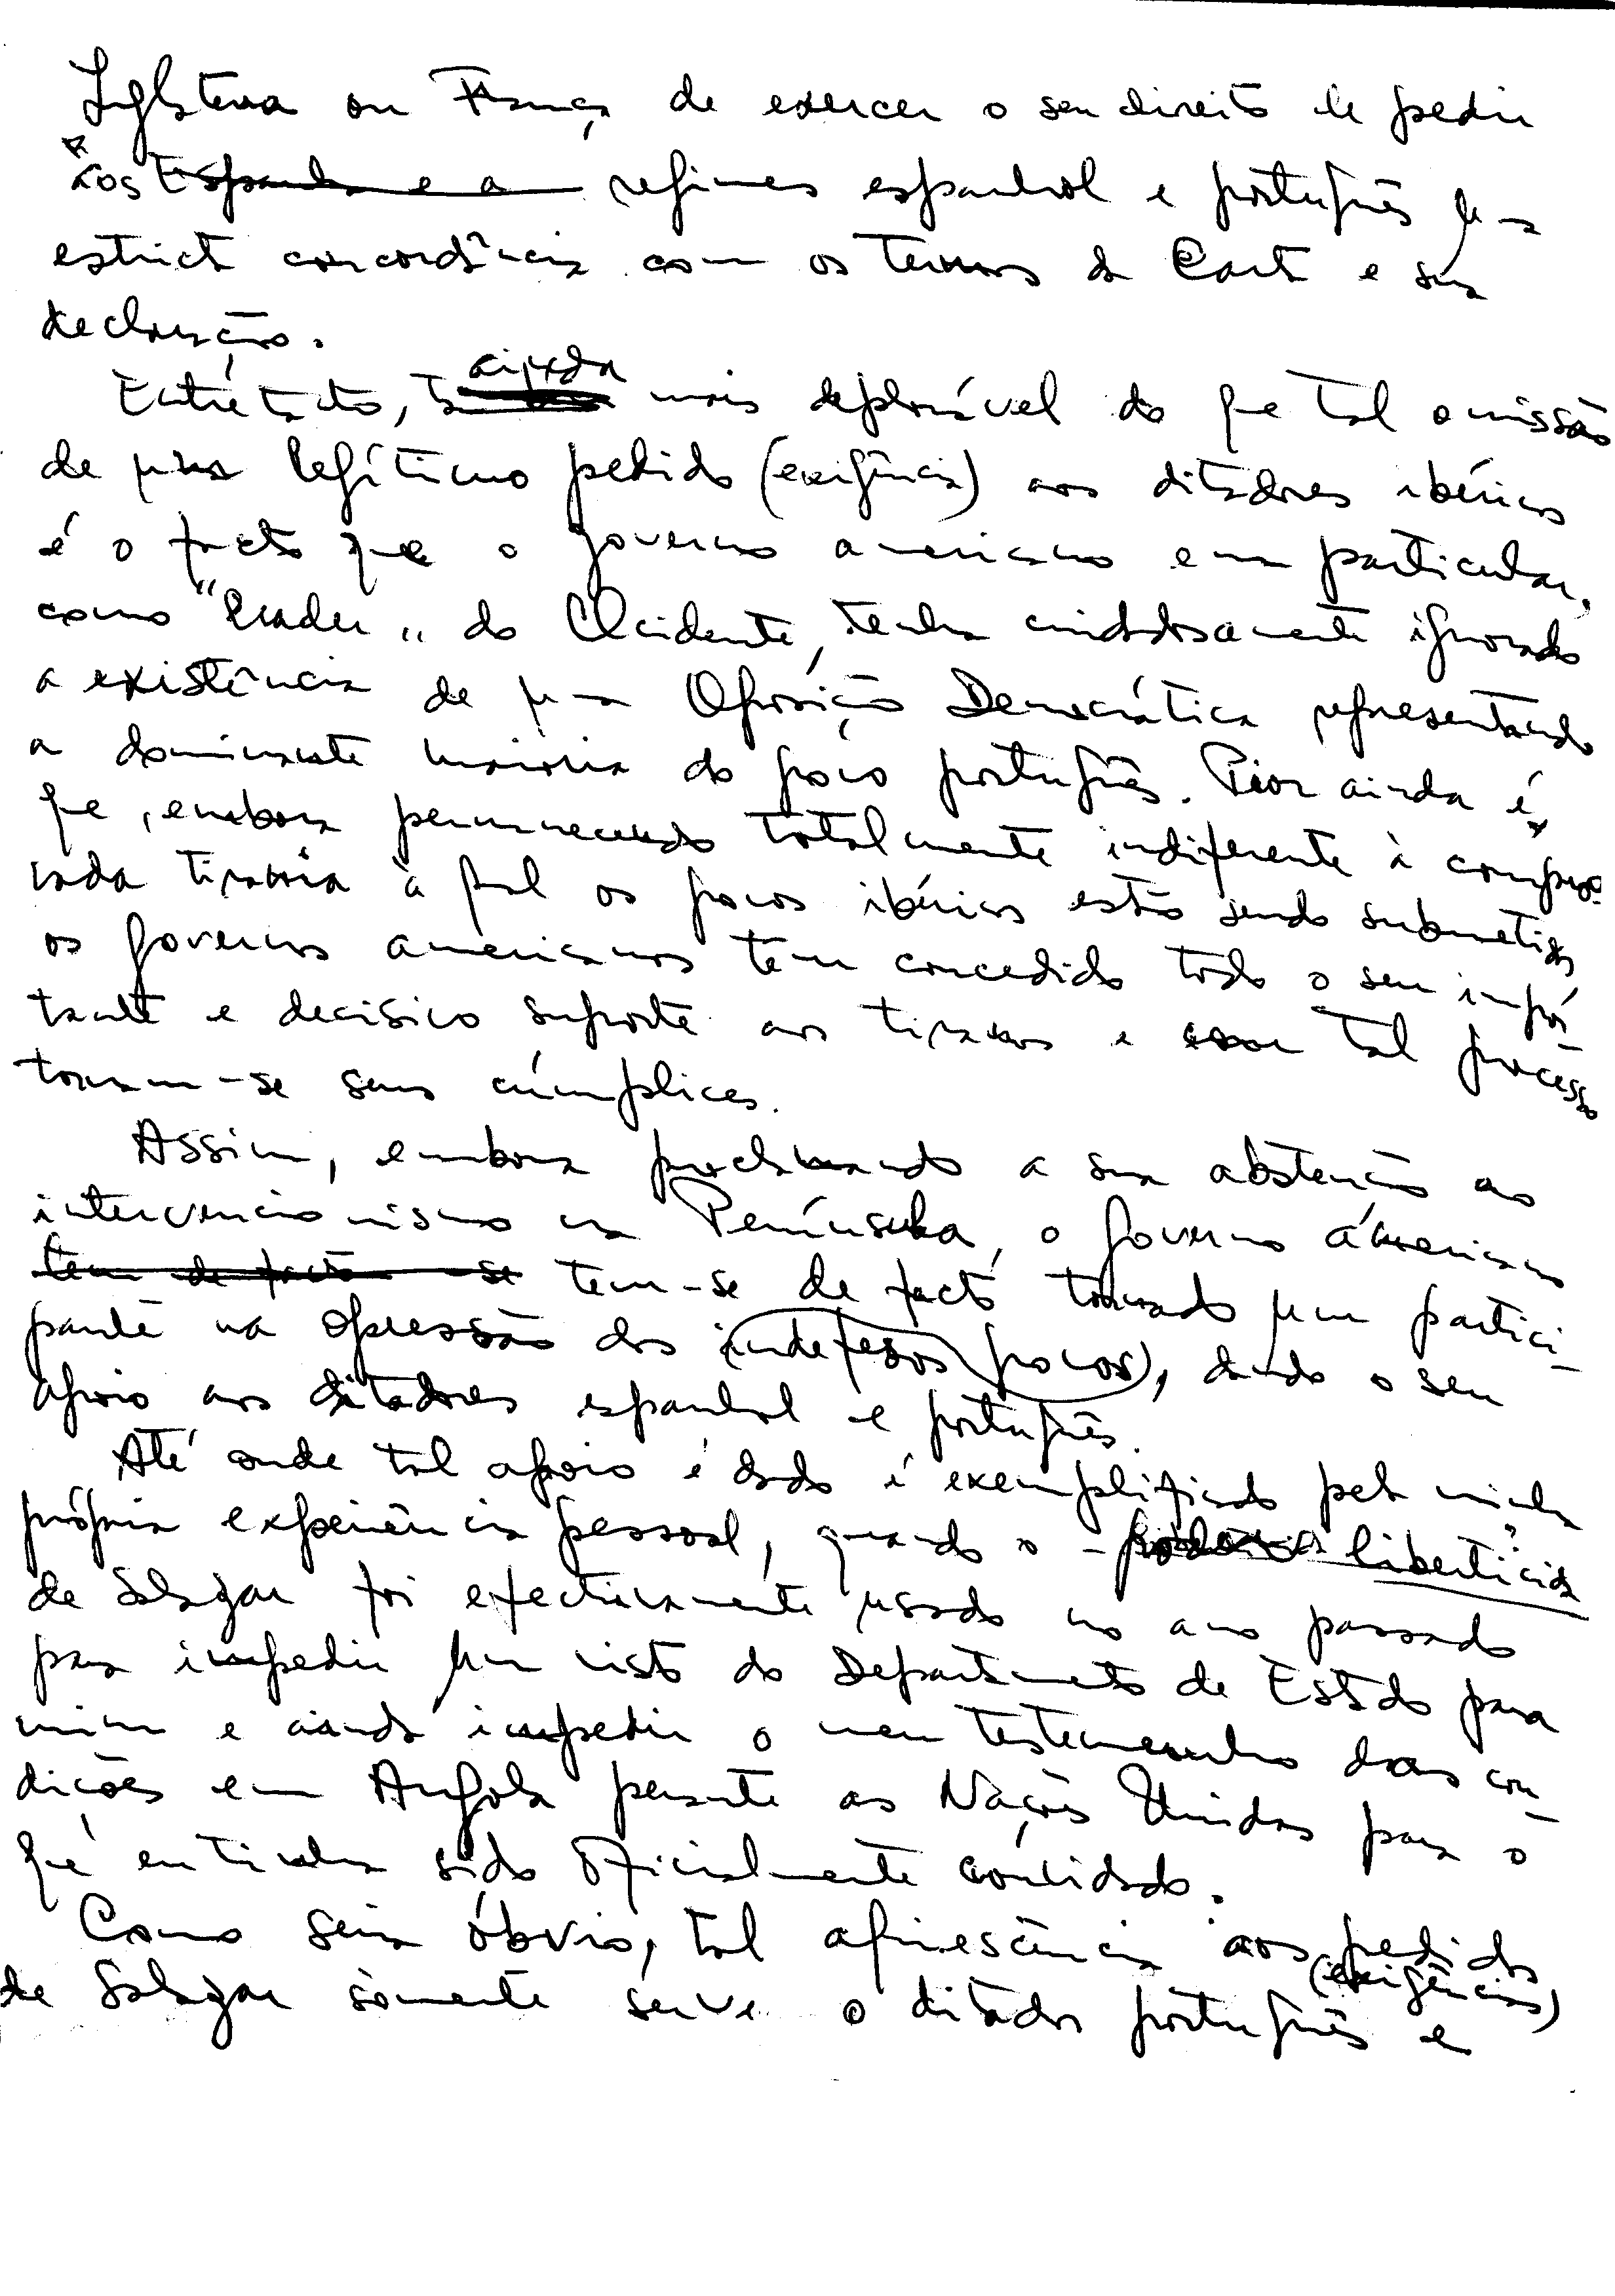 Inglaterra ou França de exercer o seu direito de pedir
aos Espanha e a regimes espanhol e português uma
estrita concordância com os termos da Carta e sua
declaração.
Entretanto, ainda mais deplorável do que tal omissão
de um legítimo pedido (exigência) aos ditadores ibéricos
é o facto que o governo americano em particular,
como "leader" do Ocidente, tenha cuidadosamente ignorado
a existência de uma Oposição Democrática representando
a dominante maioria do povo português. Pior ainda é
que, embora permanecendo totalmente indiferente à compro-
vada tirania à qual os povos ibéricos estão sendo submetidos
os governos americanos têm concedido todo o seu impor-
tante e decisivo suporte aos tiranos e com tal processo
tornam-se seus cúmplices.
Assim, embora proclamando a sua abstenção ao
intervencionismo na Península, o governo americano
tem de facto -se tem-se de facto tornado um partici-
pante na opressão dos indefesos povos, dando o seu
apoio aos ditadores espanhol e português.
Até onde tal apoio é dado é exemplificado pela minha
própria experiência pessoal, quando o poder liberticida
de Salazar foi efectivamente usado no ano passado
para impedir um visto do Departamento de Estado para
mim e ainda impedir o meu testemunho das con-
dições em Angola perante as Nações Unidas para o
qué eu tinha sido oficialmente convidado.
Como seria óbvio, tal aquiescência aos pedidos
(exigências)
de Salazar sòmente serve o ditador português e